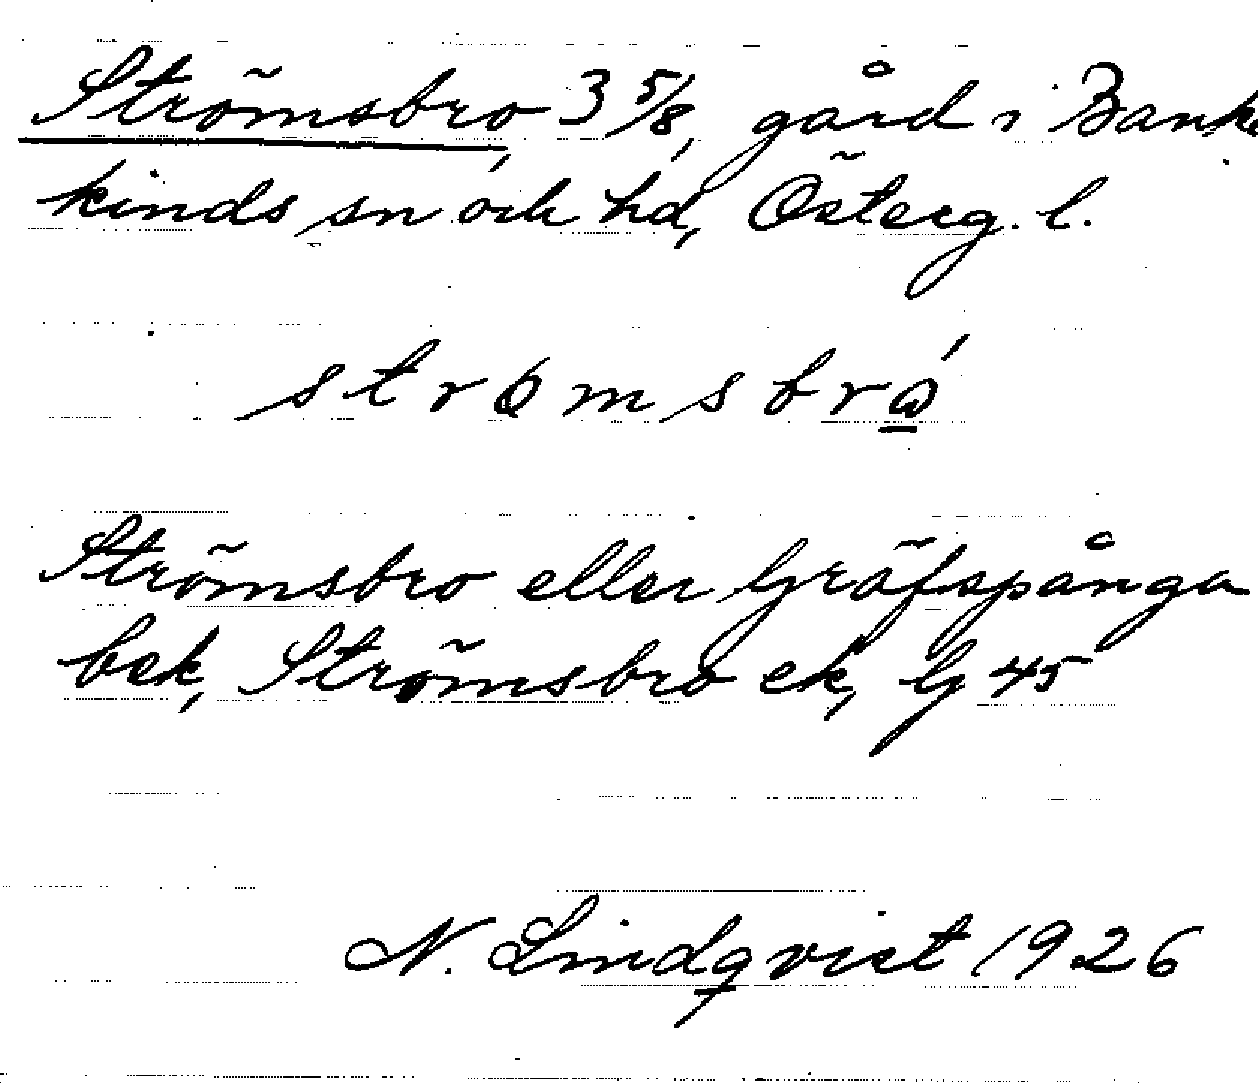 Strömsbro 3 5/8, gård i Banke
kinds sn och hd, Österg. l.
strømsbrώ
Strömsbro eller Gräfspånga
bek, Strömsbro ek, G 45
N. Lindqvist 1926